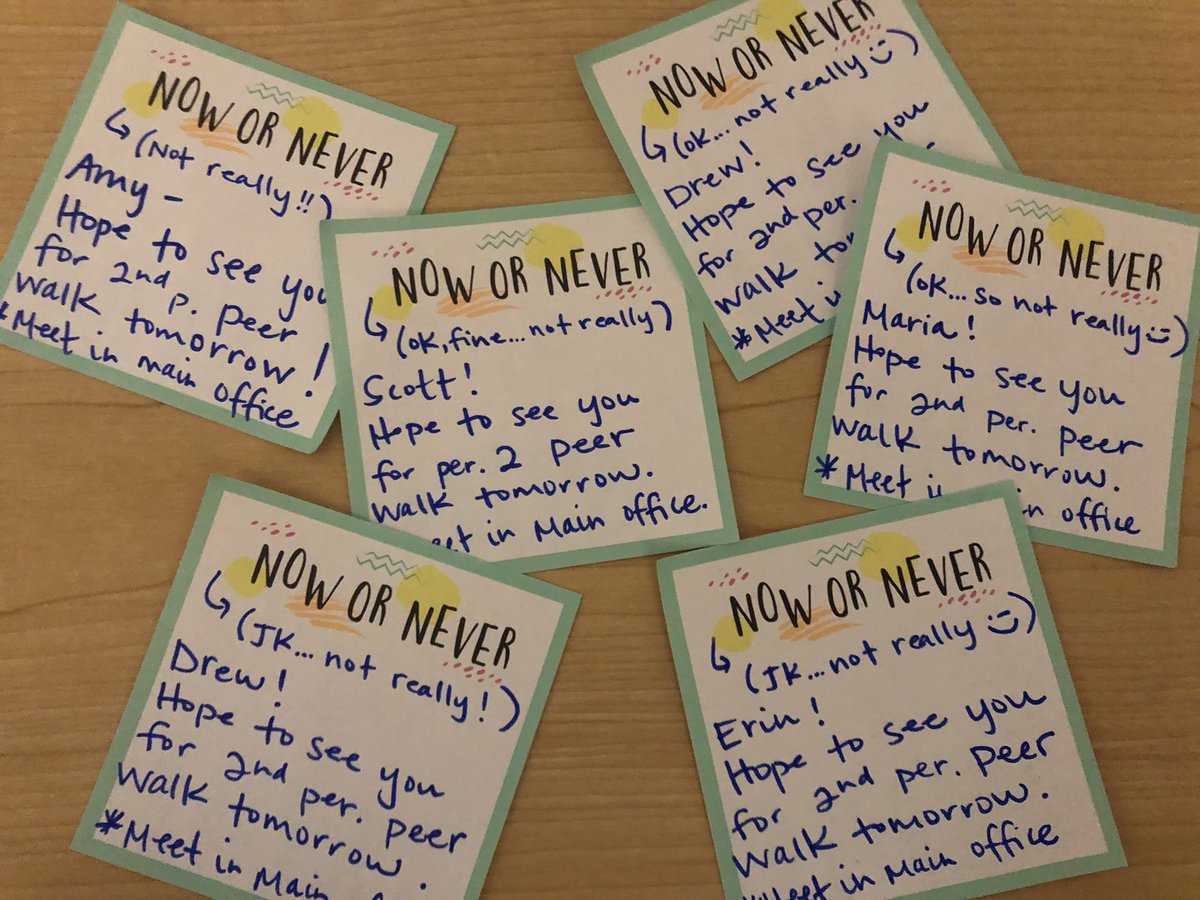 NOW OR NEVER
(Not really!!)
Amy -
Hope to see you
for 2nd p. peer
walk tomorrow!
*Meet in main office
NOW OR NEVER
(OK... not really :))
Drew!
Hope to see you
for 2nd per.
walk
*Meet in
NOW OR NEVER
(OK, fine... not really)
Scott!
Hope to see you
for per. 2 peer
walk tomorrow.
in Main office.
NOW OR NEVER
(OK... so not really :))
Maria!
Hope to see you
for 2nd per. peer
walk tomorrow.
*Meet office
NOW OR NEVER
(JK... not really!)
Drew!
Hope to see you
for 2nd per. peer
walk tomorrow.
*Meet in Main
NOW OR NEVER
(JK... not really :))
Erin!
Hope to see you
for 2nd per. peer
walk tomorrow.
*Meet in Main office